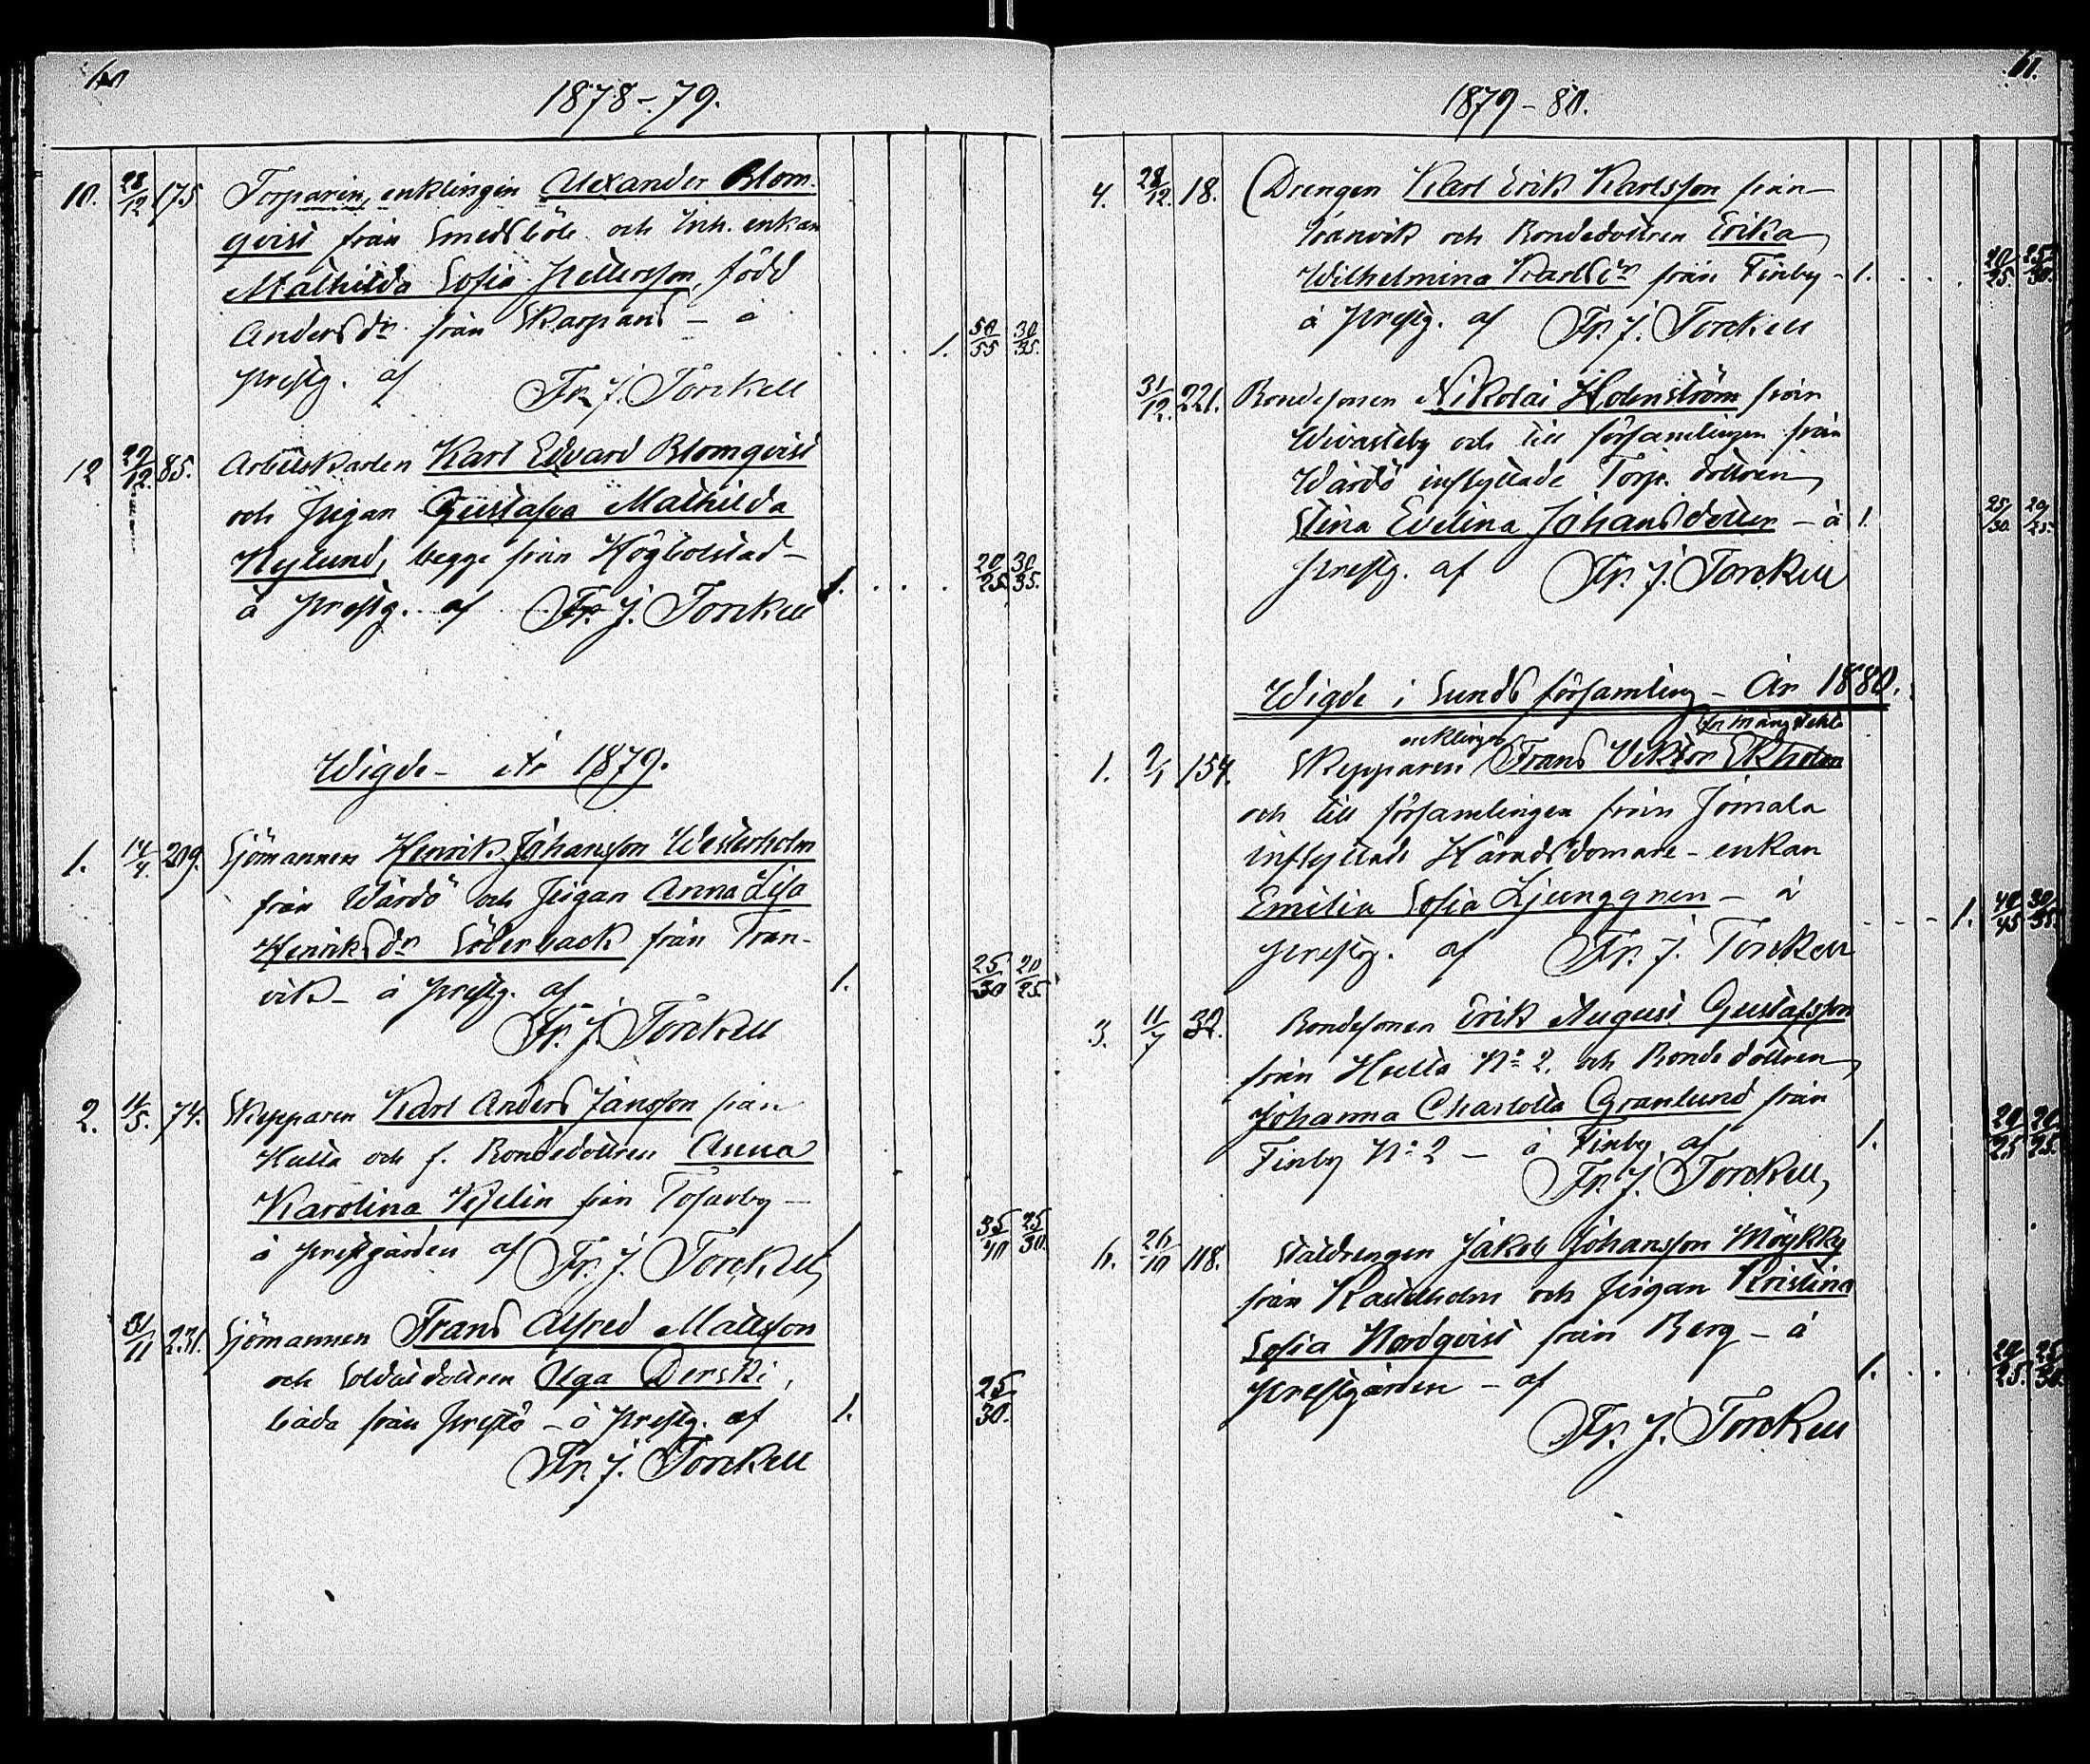 1878-79.
10. 28/12 175 Torparen, enklingen Alexander Blom-
qvist från Smedsböle och Inh. enkan
Mathilda Sofia Pettersson, född
Andersdr från Skarpans – å
1. 50/55 30/35.
prestg. af Fr. J. Torckell
12 29/12. 85. Arbetskarlen Karl Edvard Blomqvist
och Pigan Gustafva Mathilda
Nylund, begge från Högbolstad –
1. 20/25. 30/35.
å prestg. af Fr. J. Torckell
Wigde – År 1879.
1. 14/4. 209. Sjömannen Henrik Johansson Westerholm
från Wårdö och Pigan Anna Lisa
Henriksdr Söderback från Tran-
vik – å prestg. af 1. 25/30 20/25
Fr. J. Torckell
2. 11/5. 74. Skepparen Karl Anders Jansson från
Hulta och f. Bondedottren Anna
Karolina Kjelin från Tosarby –
å prestgården af Fr. J. Torckell 1. 35/40 25/30.
31/11 231. Sjömannen Frans Alfred Mattsson
och Soldatdottren Olga Derski,
båda från Prestö – å prestg. af 1. 25/30.
Fr. J. Torckell
61.
1879-80.
4. 28/12. 18. Drengen Karl Erik Karlsson från
Tranvik och Bondedottren Erika
Wilhelmina Karlsdr från Finby – 1. 20/25. 25/30.
å prestg. af Fr. J. Torckell
31/12. 221. Bondesonen Nikolai Holmström från
Wivasteby och till församlingen från
Wårdö inflyttade Torp. dottren
Stina Evelina Johansdotter – å 1. 25/30. 20/25.
prestg. af Fr. J. Torckell
Wigde i Sunds församling – År 1880.
enklingen
1. 2/1 154. Skepparen Frans Viktor Ekholm
och till församlingen från Jomala
inflyttade Häradsdomare-enkan
Emilia Sofia Ljunggren – å
1. 40/45 30/35.
prestg. af Fr. J. Torckell
3. 11/7 32. Bondesonen Erik August Gustafsson
från Hulta No 2. och Bondedottren
Johanna Charlotta Granlund från
Finby No 2 – å Finby af 1. 20/25 20/25.
Fr. J. Torckell,
6. 26/10 118. Staldrengen Jakob Johansson Möykky
från Kastelholm och Pigan Kristina
Sofia Nordqvist från Berg – å
prestgården – af 1. 20/25. 25/30.
Fr. J. Torckell